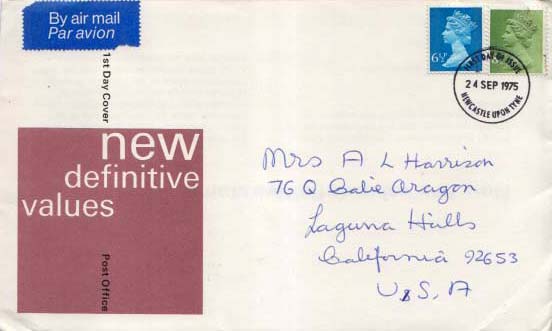 By air mail
Par avion
1st Day Cover
new
definitive
values
Post Office
6½P
FIRST DAY OF ISSUE
24 SEP 1975
NEWCASTLE UPON TYNE
Mrs A L Harrison
76 Q Calie Aragon
Laguna Hills
California 92653
U.S.A